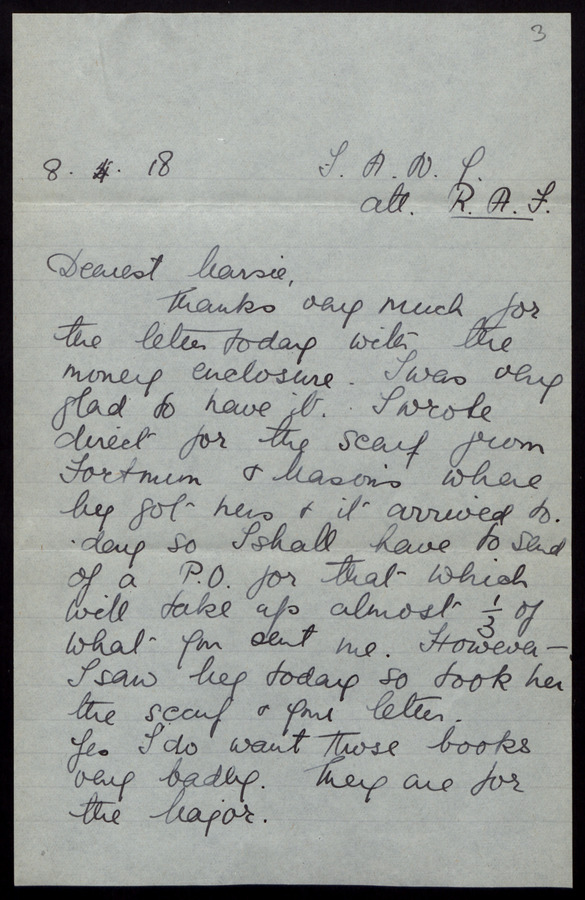 3
8. 4. 18 F. A. N. Y.
att. R. A. F.
Dearest Marsie,
Thanks very much for
the letter today with the
money enclosure. I was very
glad to have it. I wrote
direct for the scarf from
Fortnum & Mason's where
Meg got hers & it arrived to.
day so I shall have to send
of a P.O. for that which
will take up almost 1/3 of
what you sent me. However —
I saw Meg today so took her
the scarf & your letter.
Yes I do want those books
very badly. They are for
the Major.